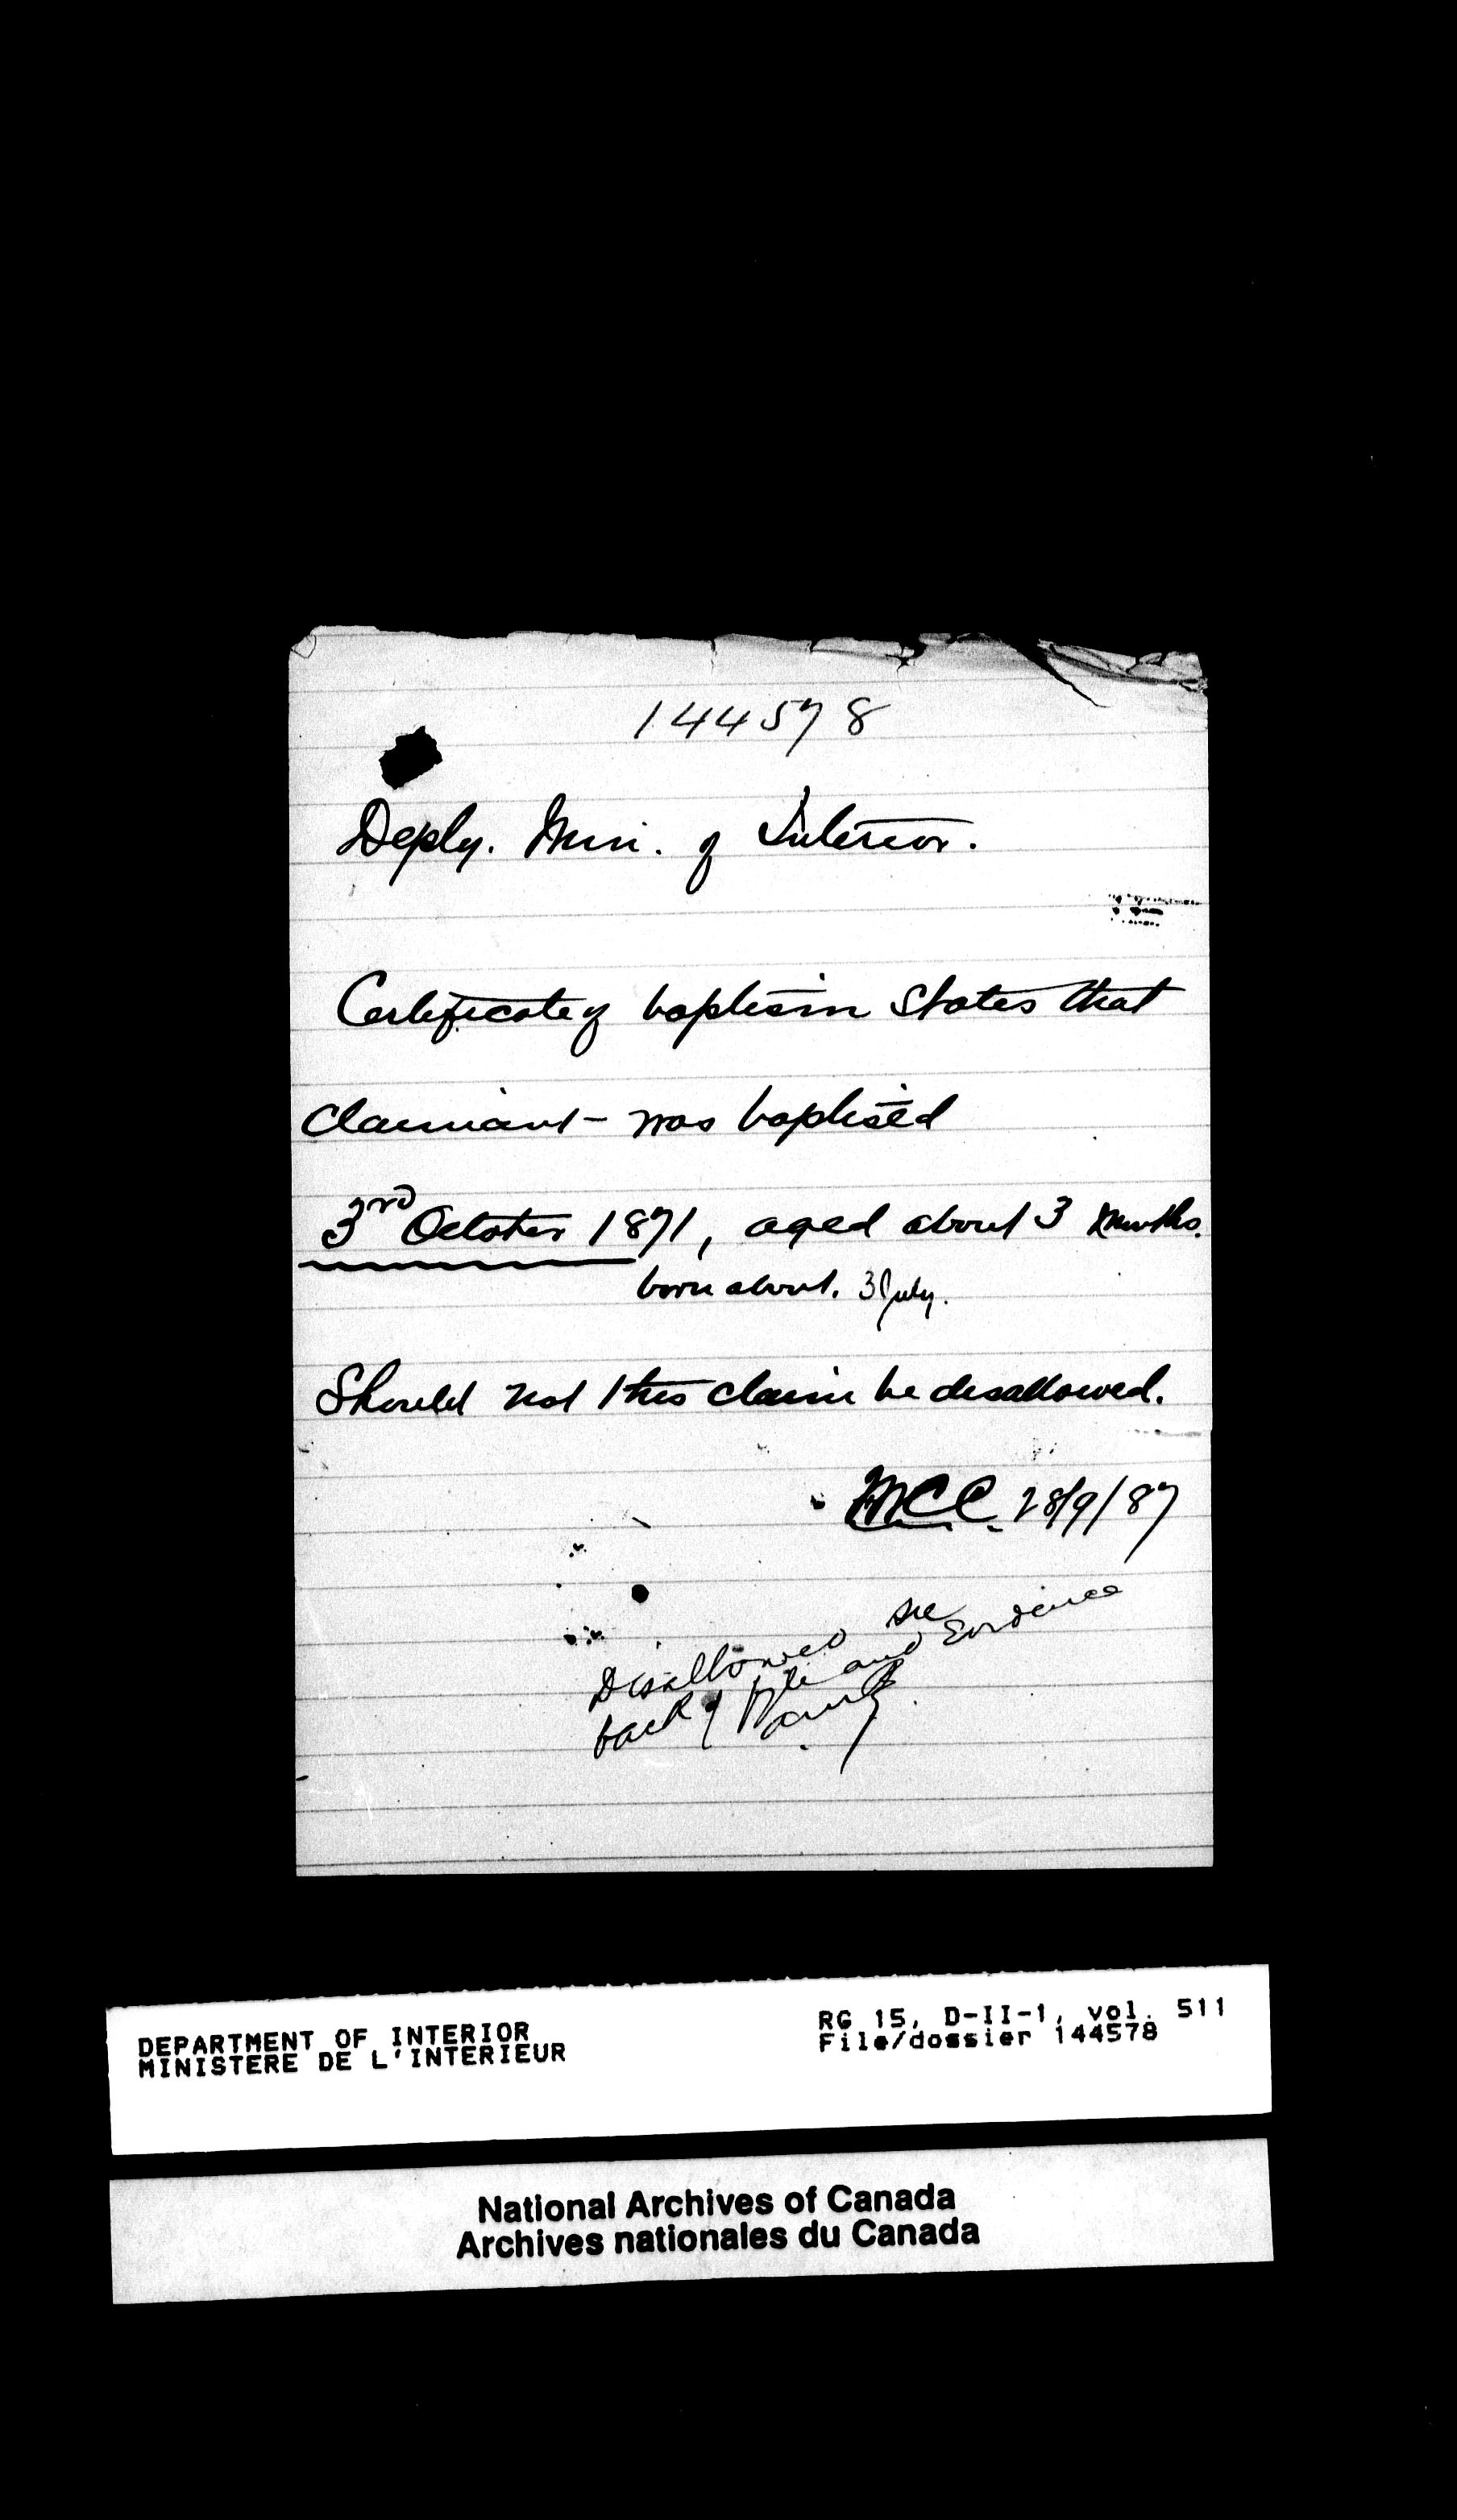 144578
Depty. Min. of Interior.
Certificate of baptism states that
claimant - was baptised
3rd October 1871, aged about 3 months.
born about. 3 July.
Should not this claim be disallowed.
28/9/87
Disallowed see
back of file and Evidence
DEPARTMENT OF INTERIOR
MINISTERE DE L'INTERIEUR
RG 15, D-II-1, vol. 511
File/dossier 144578
National Archives of Canada
Archives nationales du Canada